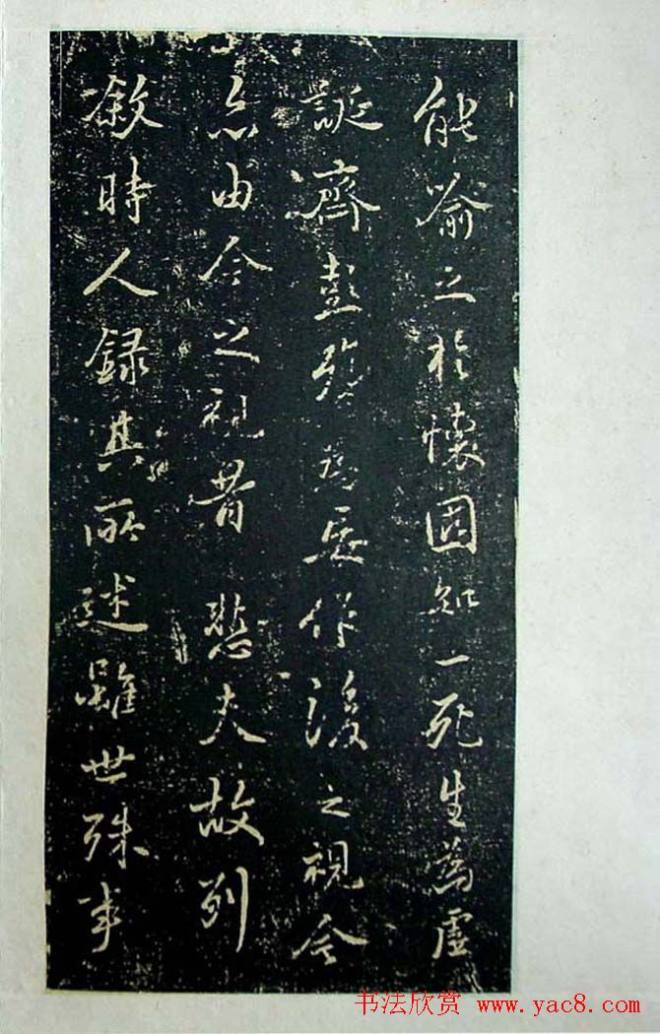 能喻之於懷固知一死生為虛
誕齊彭殤為妄作後之視今
亦由今之視昔悲夫故列
敘時人錄其所述雖世殊事
书法欣赏 www.yac8.com